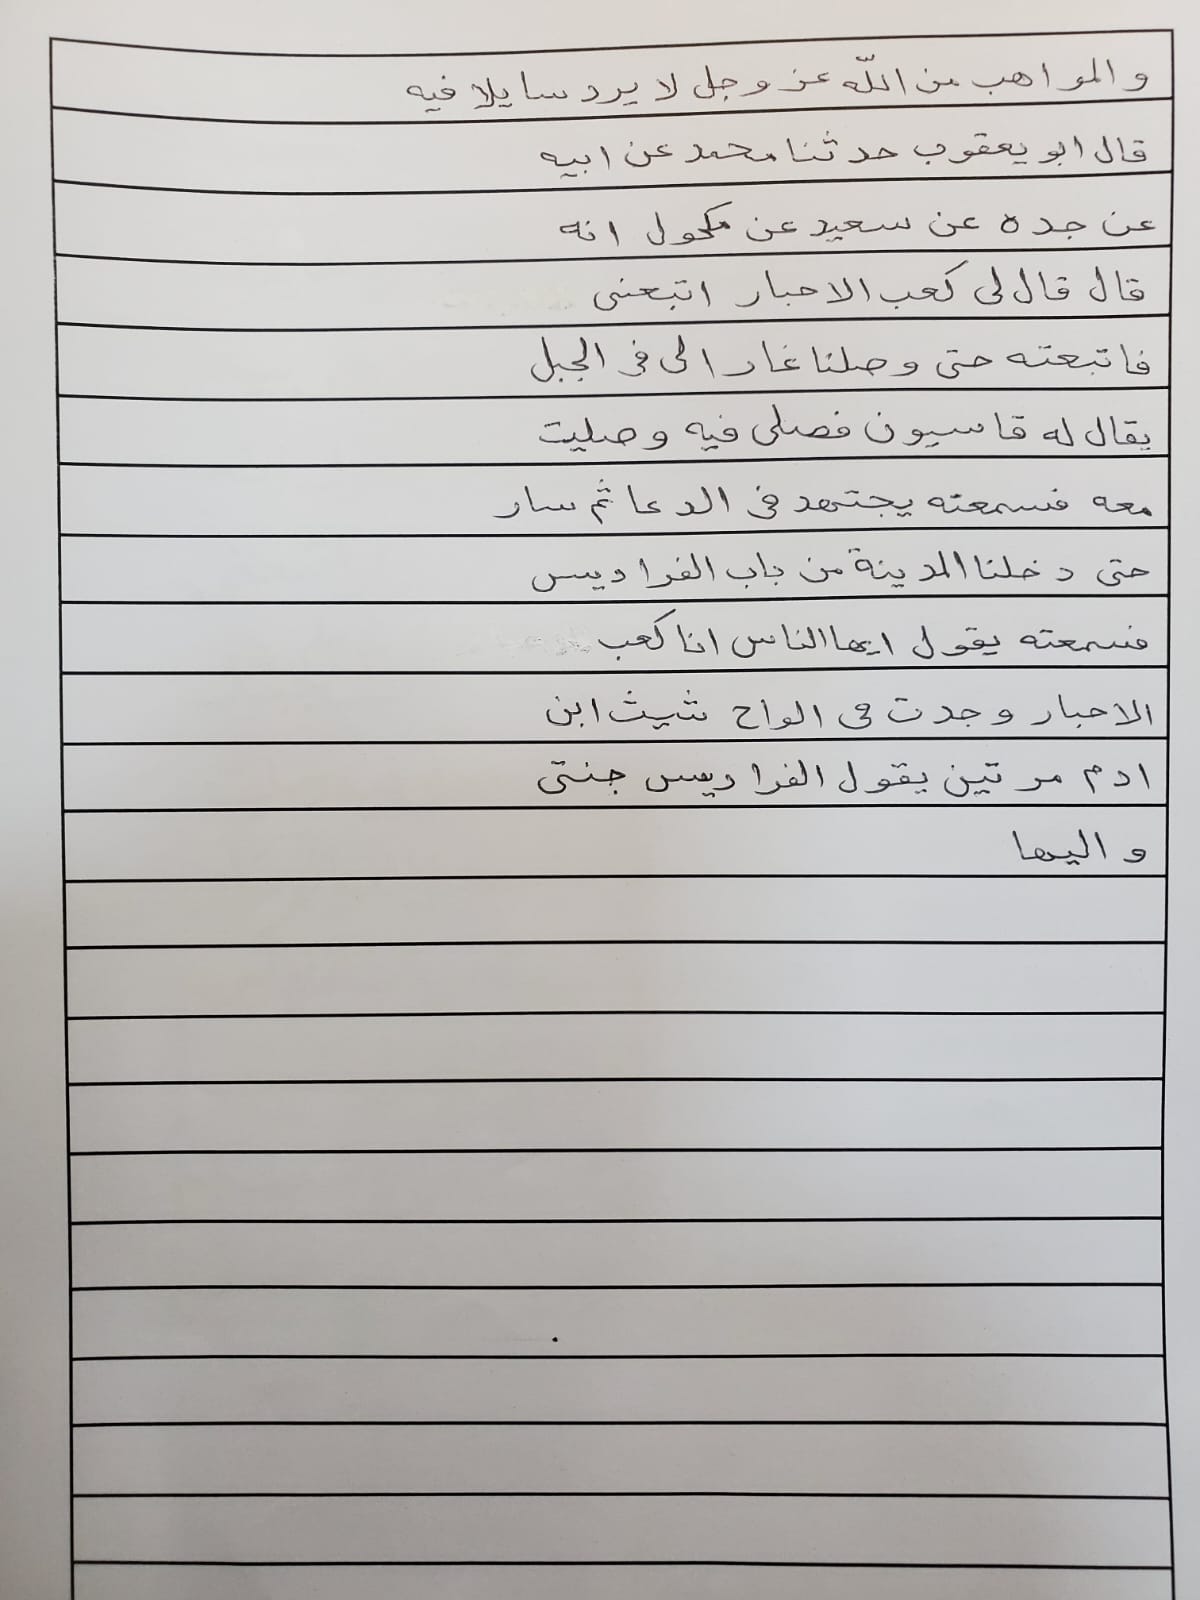 والمواهب من الله عز وجل لا يرد سايلا فيه
قال ابو يعقوب حدثنا محمد عن ابيه
عن جده عن سعيد عن مكحول انه
قال قال لى كعب الاحبار اتبعنى
فاتبعته حتى وصلنا غار الى فى الجبل
يقال له قاسيون فصلى فيه وصليت
معه فسمعته يجتهد فى الدعا ثم سار
حتى دخلنا المدينة من باب الفراديس
فسمعته يقول ايها الناس انا كعب
الاحبار وجدت فى الواح شيث ابن
ادم مرتين يقول الفراديس جنتى
واليها